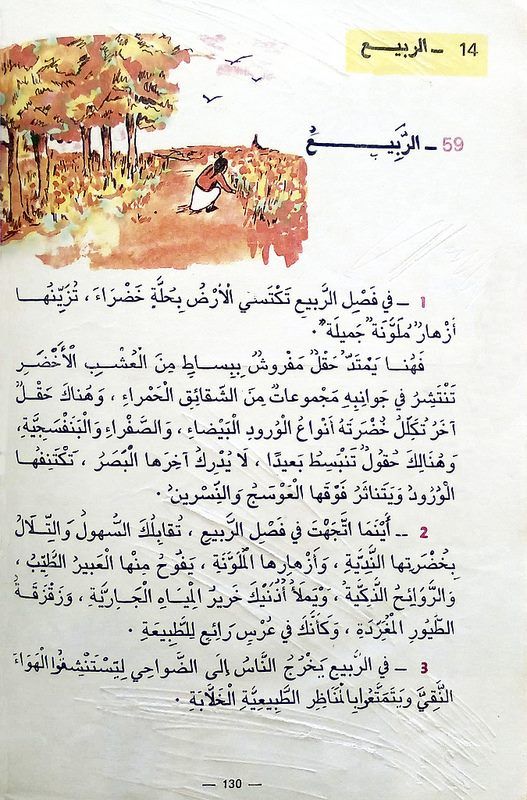 14 ـ الربيـــع
59 ـ الرَّبِيـــــــعُ
1 ـ في فَصْلِ الرَّبيعِ تَكْتَسي الْأَرْضُ بِحُلَّةٍ خَضْرَاءَ ، تُزَيِّنُهــا
أَزْهارٌ مُلَوَّنَةٌ جَميلَةٌ .
فَهُنـا يَمْتَدُّ حَقْلٌ مَفْروشٌ بِبِساطٍ مِنَ الْعُشْبِ الْأَخْضَرِ
تَنْتَشِرُ في جَوانِبِهِ مَجْموعاتٌ مِنَ الشَّقائِقِ الْحَمْراءِ ، وَهُناكَ حَقْلٌ
آخَرُ تُكَلِّلُ خُضْرَتَهُ أَنْواعُ الْوُرودِ الْبَيْضاءِ ، وَالصَّفْراءِ وَالْبَنَفْسَجِيَّةِ،
وَهُنالِكَ حُقولٌ تَنْبَسِطُ بَعيدًا ، لَا يُدْرِكُ آخِرَها الْبَصَرُ ، تَكْتَنِفُها
الْوُرُودُ وَيَتَناثَرُ فَوْقَها الْعَوْسَجُ وَالنِّسْرينُ .
2 ـ أَيْنَمَا اتَّجَهْتَ في فَصْلِ الرَّبيعِ ، تُقابِلُكَ السُّهولُ وَالتِّـلَالُ
بِخُضْرَتِها النَّدِيَّةِ ، وَأَزْهارِها الْمُلَوَّنَةِ ، يَفُوحُ مِنْها الْعَبيرُ الطَّيِّبُ ،
وَالرَّوَائِحُ الذَّكِيَّةُ ، وَيَمْلَأُ أُذُنَيْكَ خَريرُ الْمِيَاهِ الْجَارِيَّةِ ، وَزَقْزَقَةُ
الطُّيورِ الْمُغَرِّدَةِ ، وَكَأَنَّكَ في عُرْسٍ رَائِعٍ لِلطَّبيعَةِ .
3 ـ في الرَّبيعِ يَخْرُجُ النَّاسُ إِلَى الضَّواحِي لِيَسْتَنْشِقُوا الْهَوَاءَ
النَّقِيَّ وَيَتَمَتَّعُوا بِالْمَنَاظِرِ الطَّبِيعِيَّةِ الْخَلَّابَةِ .
— 130 —